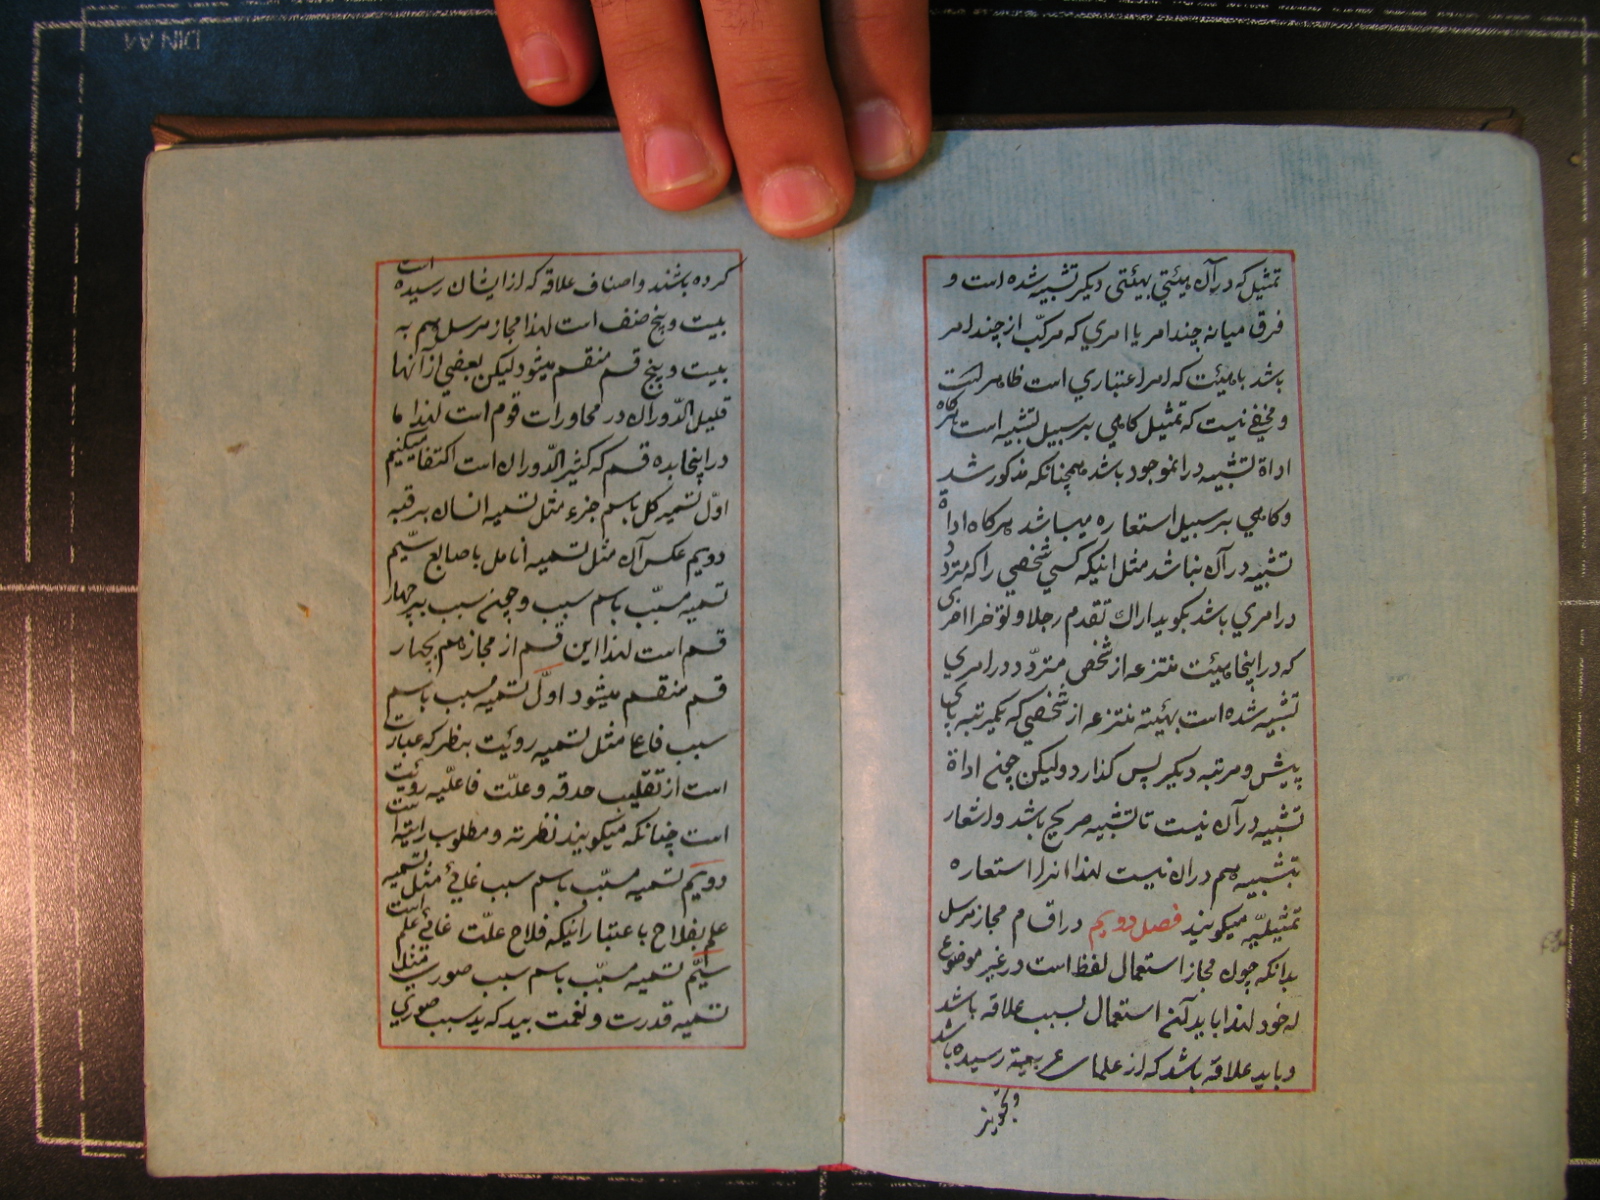 تمثیل که در آن هیئتي بهیئتي دیکر تشبیه شده است و
فرق میانه چند امر یا امري که مرکّب از چند امر
باشد با هیئت که امر اعتباري است ظاهر است
و مخفي نیست که تمثیل کاهي بر سبیل تشبیه است هرکاه
اداة تشبیه در انموجود باشد همچنانکه مذکور شد
و کاهي بر سبیل استعاره میباشد هرکاه اداة
تشبیه در آن نباشد مثل اینکه کسي شخصي را که متردّد
در امري باشد بکوید اراك تقدم رجلا و تؤخر اخری
که در اینجا هیئت منتزعه از شخص متردّد در امري
تشبیه شده است بهیئة منتزعه از شخصي که یکمرتبه پای
پیش و مرتبه دیکر پس کذارد ولیکن چون اداة
تشبیه در آن نیست تا تشبیه صریح باشد و اشعار
بتشبیه هم در ان نیست لهذا انرا استعاره
تمثیلیّه میکویند فصل دویم در اقسام مجاز مرسل
بدانکه چون مجاز استعمال لفظ است در غیر موضوع
له خود لهذا باید آن استعمال بسبب علاقه باشد
و باید علاقه باشد که از علمای عربیة رسیده باشد
و تجویز
کرده باشند و اصناف علاقه که از ایشان رسیده است
بیست و پنج صنف است لهذا مجاز مرسل هم به
بیست و پنج قسم منقسم میشود لیکن بعضي از آنها
قلیل الدّوران در محاورات قوم است لهذا ما
در اینجا بده قسم که کثیر الدّوران است اکتفا میکنیم
اوّل تسمیه کل باسم جزء مثل تسمیه انسان برقبه
دویم عکس آن مثل تسمیه أنامل باصابع سیّم
تسمیه مسبّب باسم سبب و چون سبب بر چهار
قسم است لهذا این قسم از مجاز هم بچهار
قسم منقسم میشود اوّل تسمیه مسبب باسم
سبب فاعلی مثل تسمیه رویت بنظر که عبارت
است از تقلیب حدقه و علّت فاعلیه رؤیت
است چنانکه میکویند نظرته و مطلوب رایته است
دویم تسمیه مسبّب باسم سبب غائي مثل تسمیه
علم بفلاح باعتبار اینکه فلاح علّت غائي علم است
سیّم تسمیه مسبّب باسم سبب صوري مثل
تسمیه قدرت و نعمت بید که ید سبب صوري